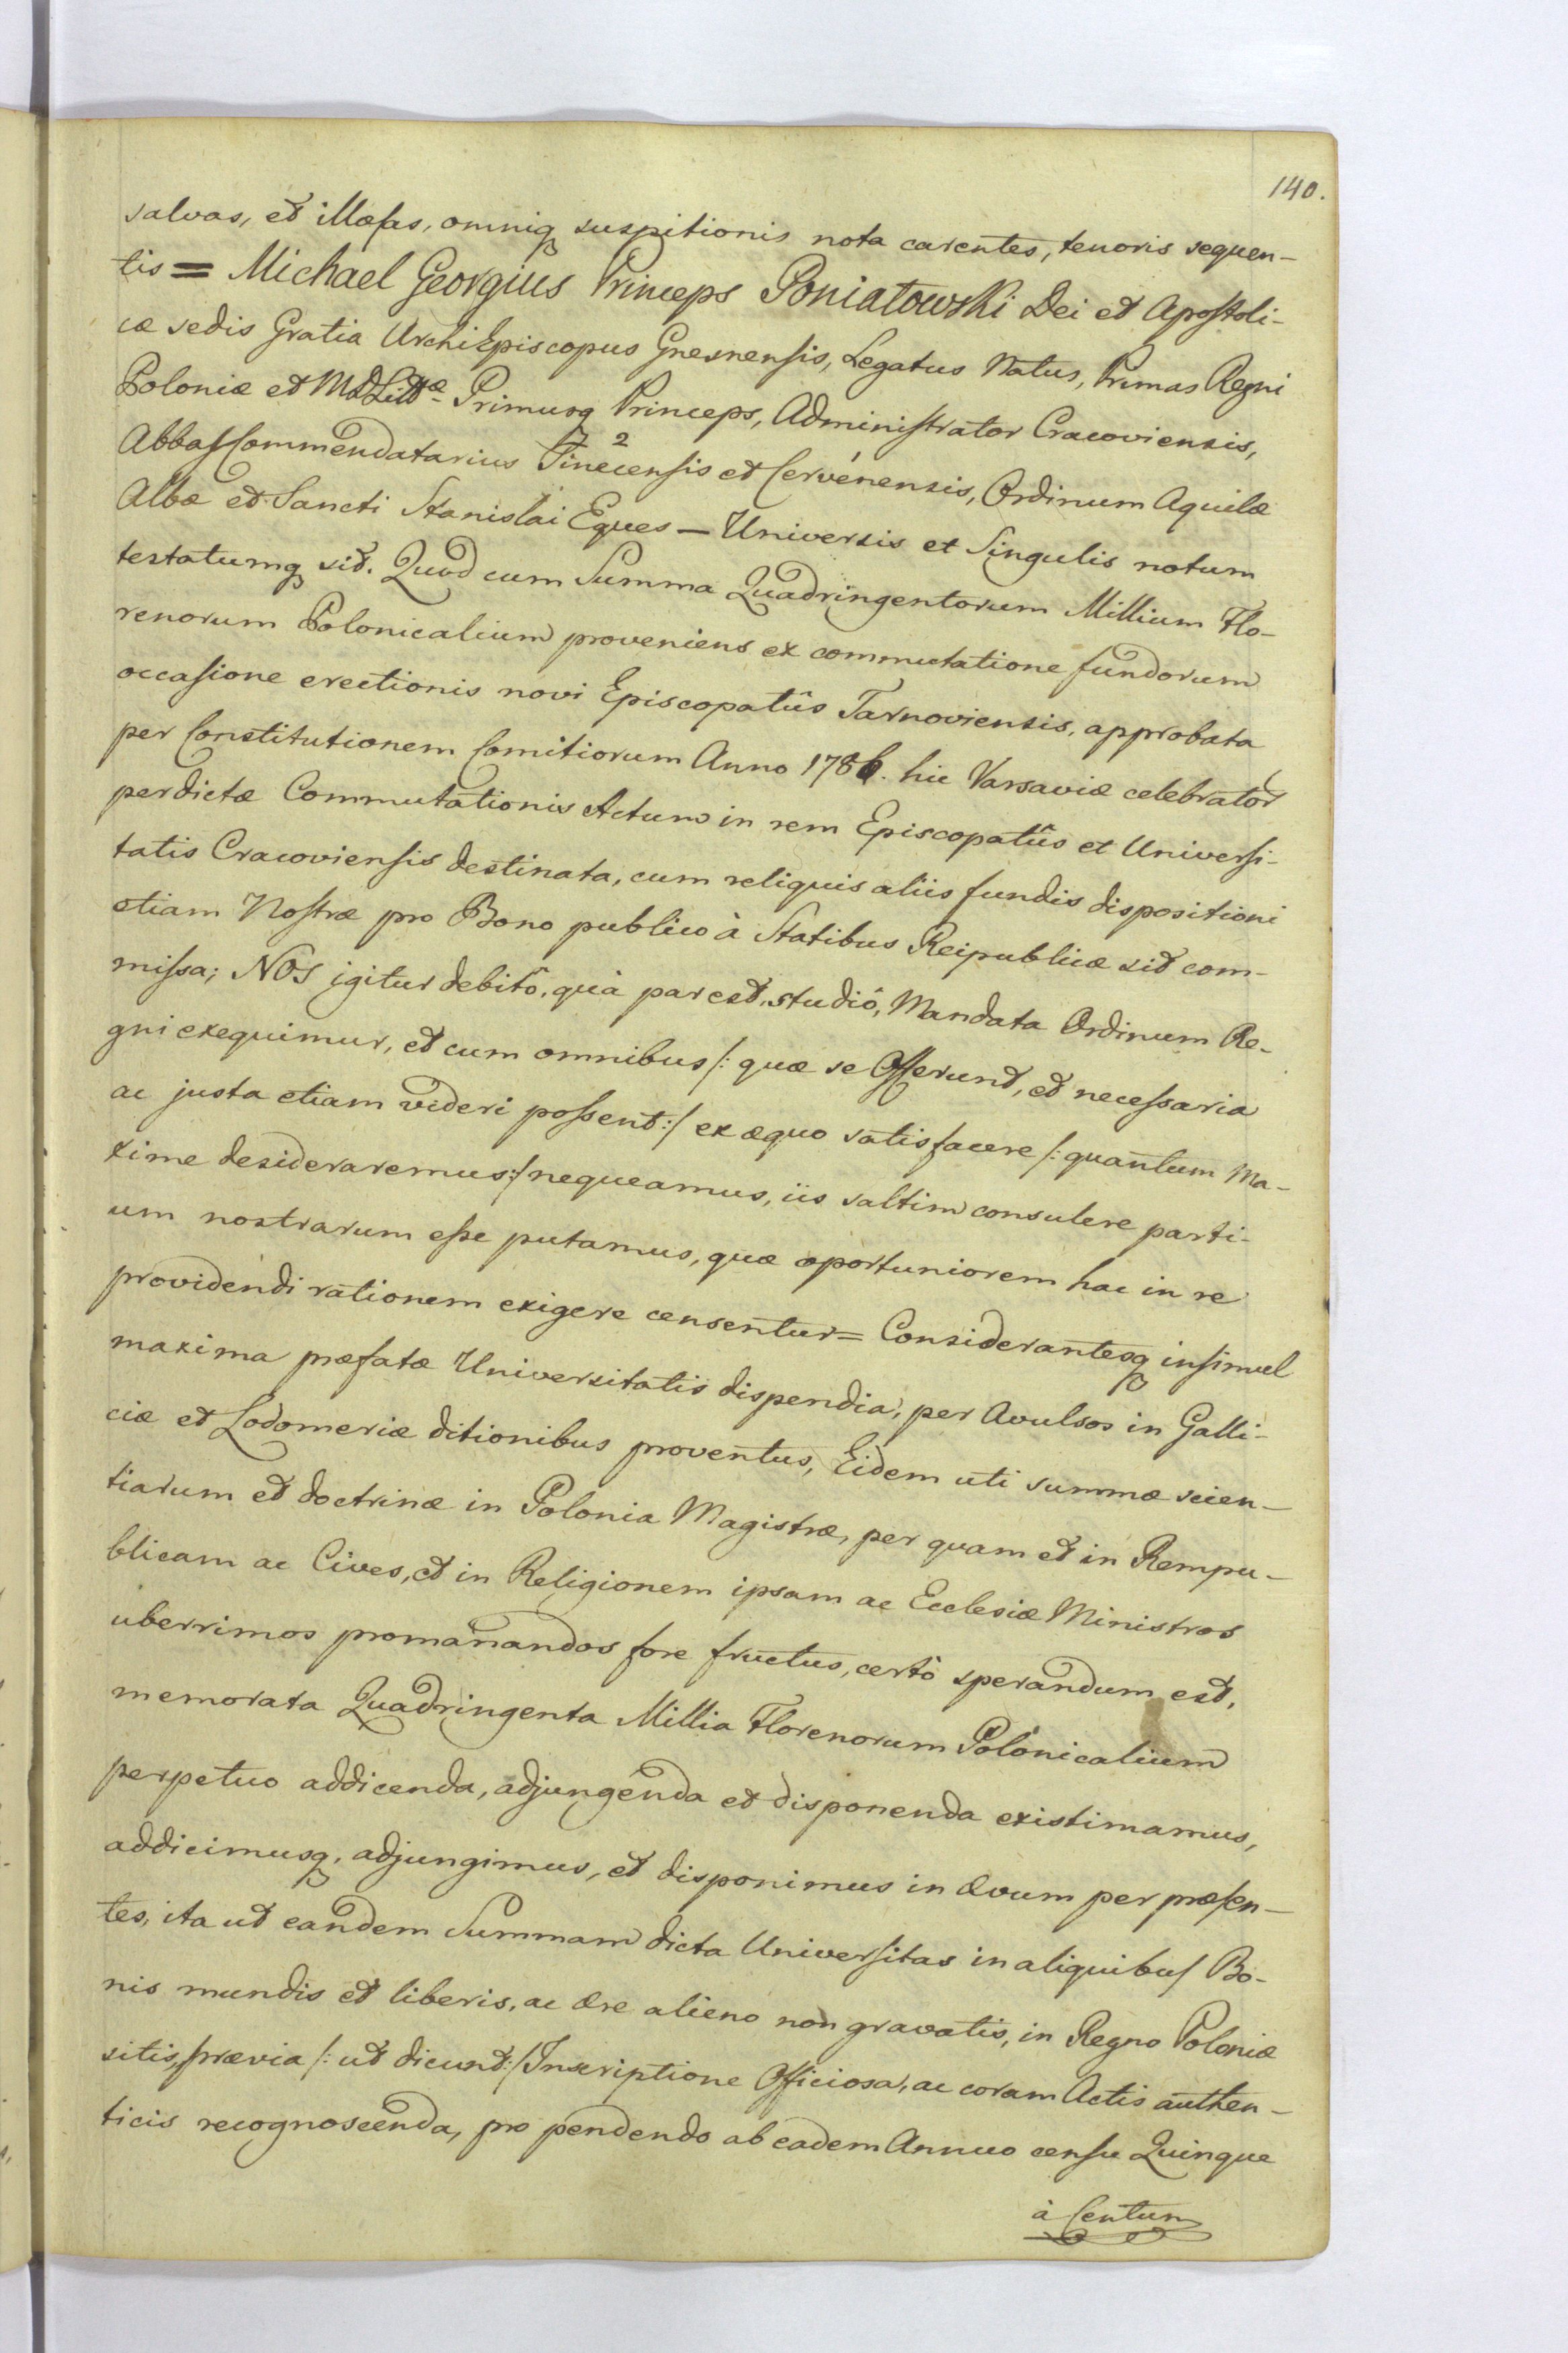 140.
salvas, et illæsas, omniq suspitionis nota carentes, tenoris sequen-
tis = Michael Georgius Princeps Poniatowski Dei et Apostoli-
cæ sedis Gratia ArchiEpiscopus Gnesnensis, Legatus Natus, Primas Regni
Poloniæ et MDLittæ Primusq Princeps, Administrator Cracoviensis,
Abbas Commendatarius Tinecensis et Cervenensis, Ordinum Aquilæ
Albæ et Sancti Stanislai Eques — Universis et Singulis notum
testatumq sit. Quod cum Summa Quadringentorum Millium Flo-
renorum Polonicalium proveniens ex commutatione fundorum
occasione erectionis novi Episcopatûs Tarnoviensis, approbata
per Constitutionem Comitiorum Anno 1786. hic Varsaviæ celebrator
per dictæ Commutationis Actum in rem Episcopatûs et Universi-
tatis Cracoviensis destinata, cum reliquis aliis fundis dispositioni
etiam Nostræ pro Bono publico à Statibus Reipublicæ sit com-
missa; NOS igitur debitô, quà par est, studiô, Mandata Ordinum Re-
gni exequimur, et cum omnibus /: quæ se offerunt, et necessaria
ac justa etiam videri possent :/ ex æquo satisfacere /: quantum Ma-
xime desideraremus :/ nequeamus, iis saltim consulere parti-
um nostrarum esse putamus, quæ oportuniorem hac in re
providendi rationem exigere censentur = Considerantesq insimul
maxima præfatæ Universitatis dispendia, per Avulsos in Galli-
ciæ et Lodomeriæ ditionibus proventus, Eidem uti summæ scien-
tiarum et doctrinæ in Polonia Magistræ, per quam et in Rempu-
blicam ac Cives, et in Religionem ipsam ac Ecclesiæ Ministros
uberrimos promanandos fore fructus, certò sperandum est,
memorata Quadringenta Millia Florenorum Polonicalium
perpetuo addicenda, adjungenda et disponenda existimamus,
addicimusq, adjungimus, et disponimus in ævum per præsen-
tes, ita ut eandem Summam dicta Universitas in aliquibus Bo-
nis mundis et liberis, ac ære alieno non gravatis, in Regno Poloniæ
sitis, prævia /: ut dicunt :/ Inscriptione Officiosa, ac coram Actis authen-
ticis recognoscenda, pro pendendo ab eadem Annuo censu Quinque
à Centum